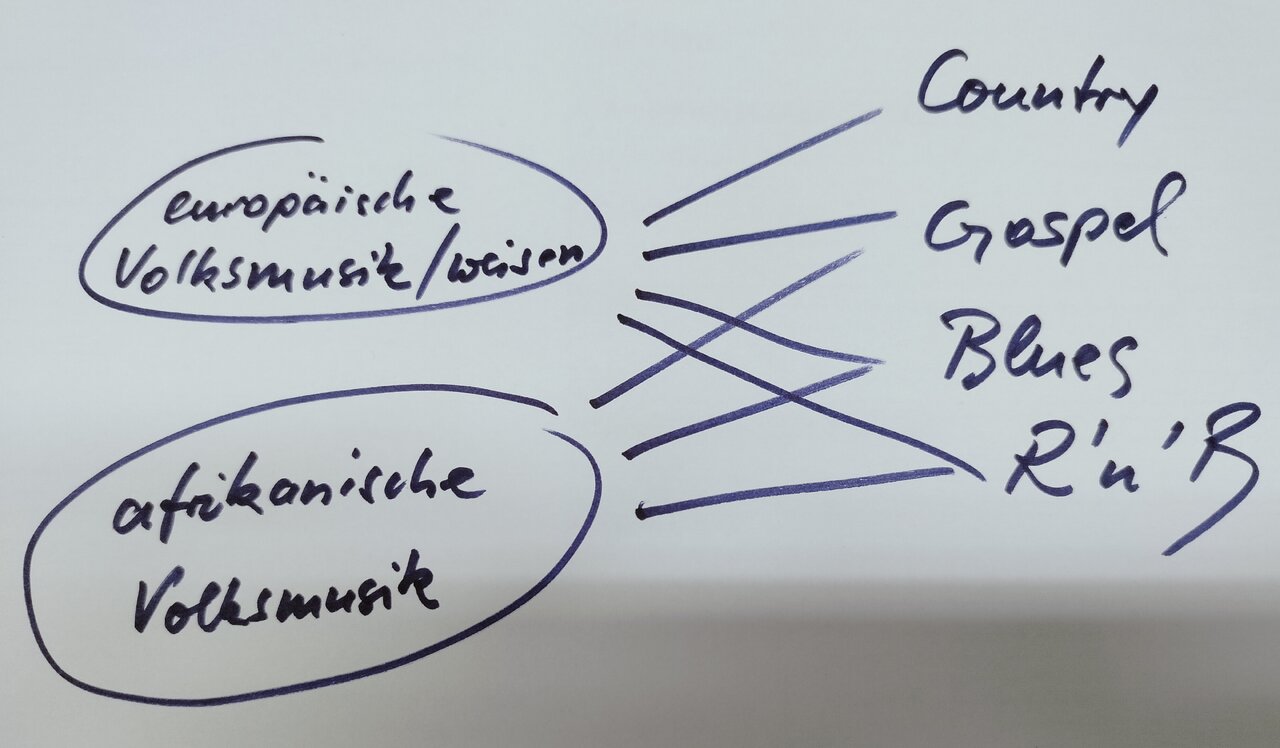 europäische
Volksmusik/weisen
afrikanische
Volksmusik
Country
Gospel
Blues
R'n'B